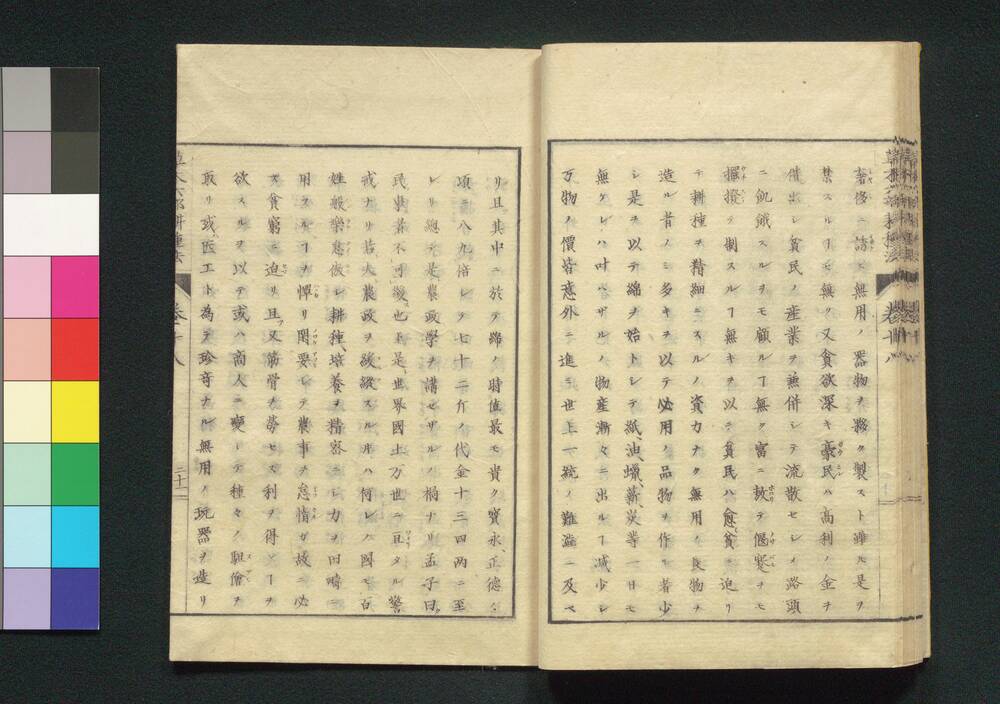 奢侈ニ誇ヒ無用ノ器物ヲ夥ク製スト雖モ是ヲ
禁スルヿモ無ク又貪欲深キ豪民ハ高利ノ金ヲ
借出シ貧民ノ産業ヲ兼併シテ流散セシメ路頭
ニ飢餓スルヲモ顧ルヿ無ク富ニ敖テ偃蹇ヲモ
テ制スルヿ無キヲ以テ貧民ハ愈貧ニ迫リ
テ耕種ヲ精細ニスルノ資力ナク無用ノ長物ヲ
造ル者ノミ多キヲ以テ必用ノ品物ヲ作モ者少
シ是ヲ以テ綿ヲ始トシテ紙油蠟薪炭等一日モ
無ケレハ叶ハザルノ物産漸々ニ出ルヿ减少シ
万物ノ價皆意外ニ進ミ世上一統ノ難澁ニ及ベ
リ且其中ニ於テ綿ノ時値最モ貴ク寳永正德ノ
頃ニ八九倍シテ七十二斤ノ代金十三四兩ニ至
レリ總テ是農政學ヲ講セザルノ禍ナリ孟子曰
民事者不可緩也ト是世界國土万世ニ亘タル警
戒ナリ若夫農政ヲ放縱スル片ハ何レノ國モ百
姓般樂怠傲シ耕種培養ヲ精密ニシ力ヲ田疇ニ
用スルヿヲ憚リ閑要シテ農事ヲ怠惰ガ故ニ必
ス貧窮ニ迫リ且又筋骨ヲ勞セス利ヲ得ンヿヲ
欲スルヲ以テ或ハ商人ニ變シテ種々ノ駔儈ヲ
取リ或医工ト為テ珍奇ナル無用ノ玩器ヲ造リ